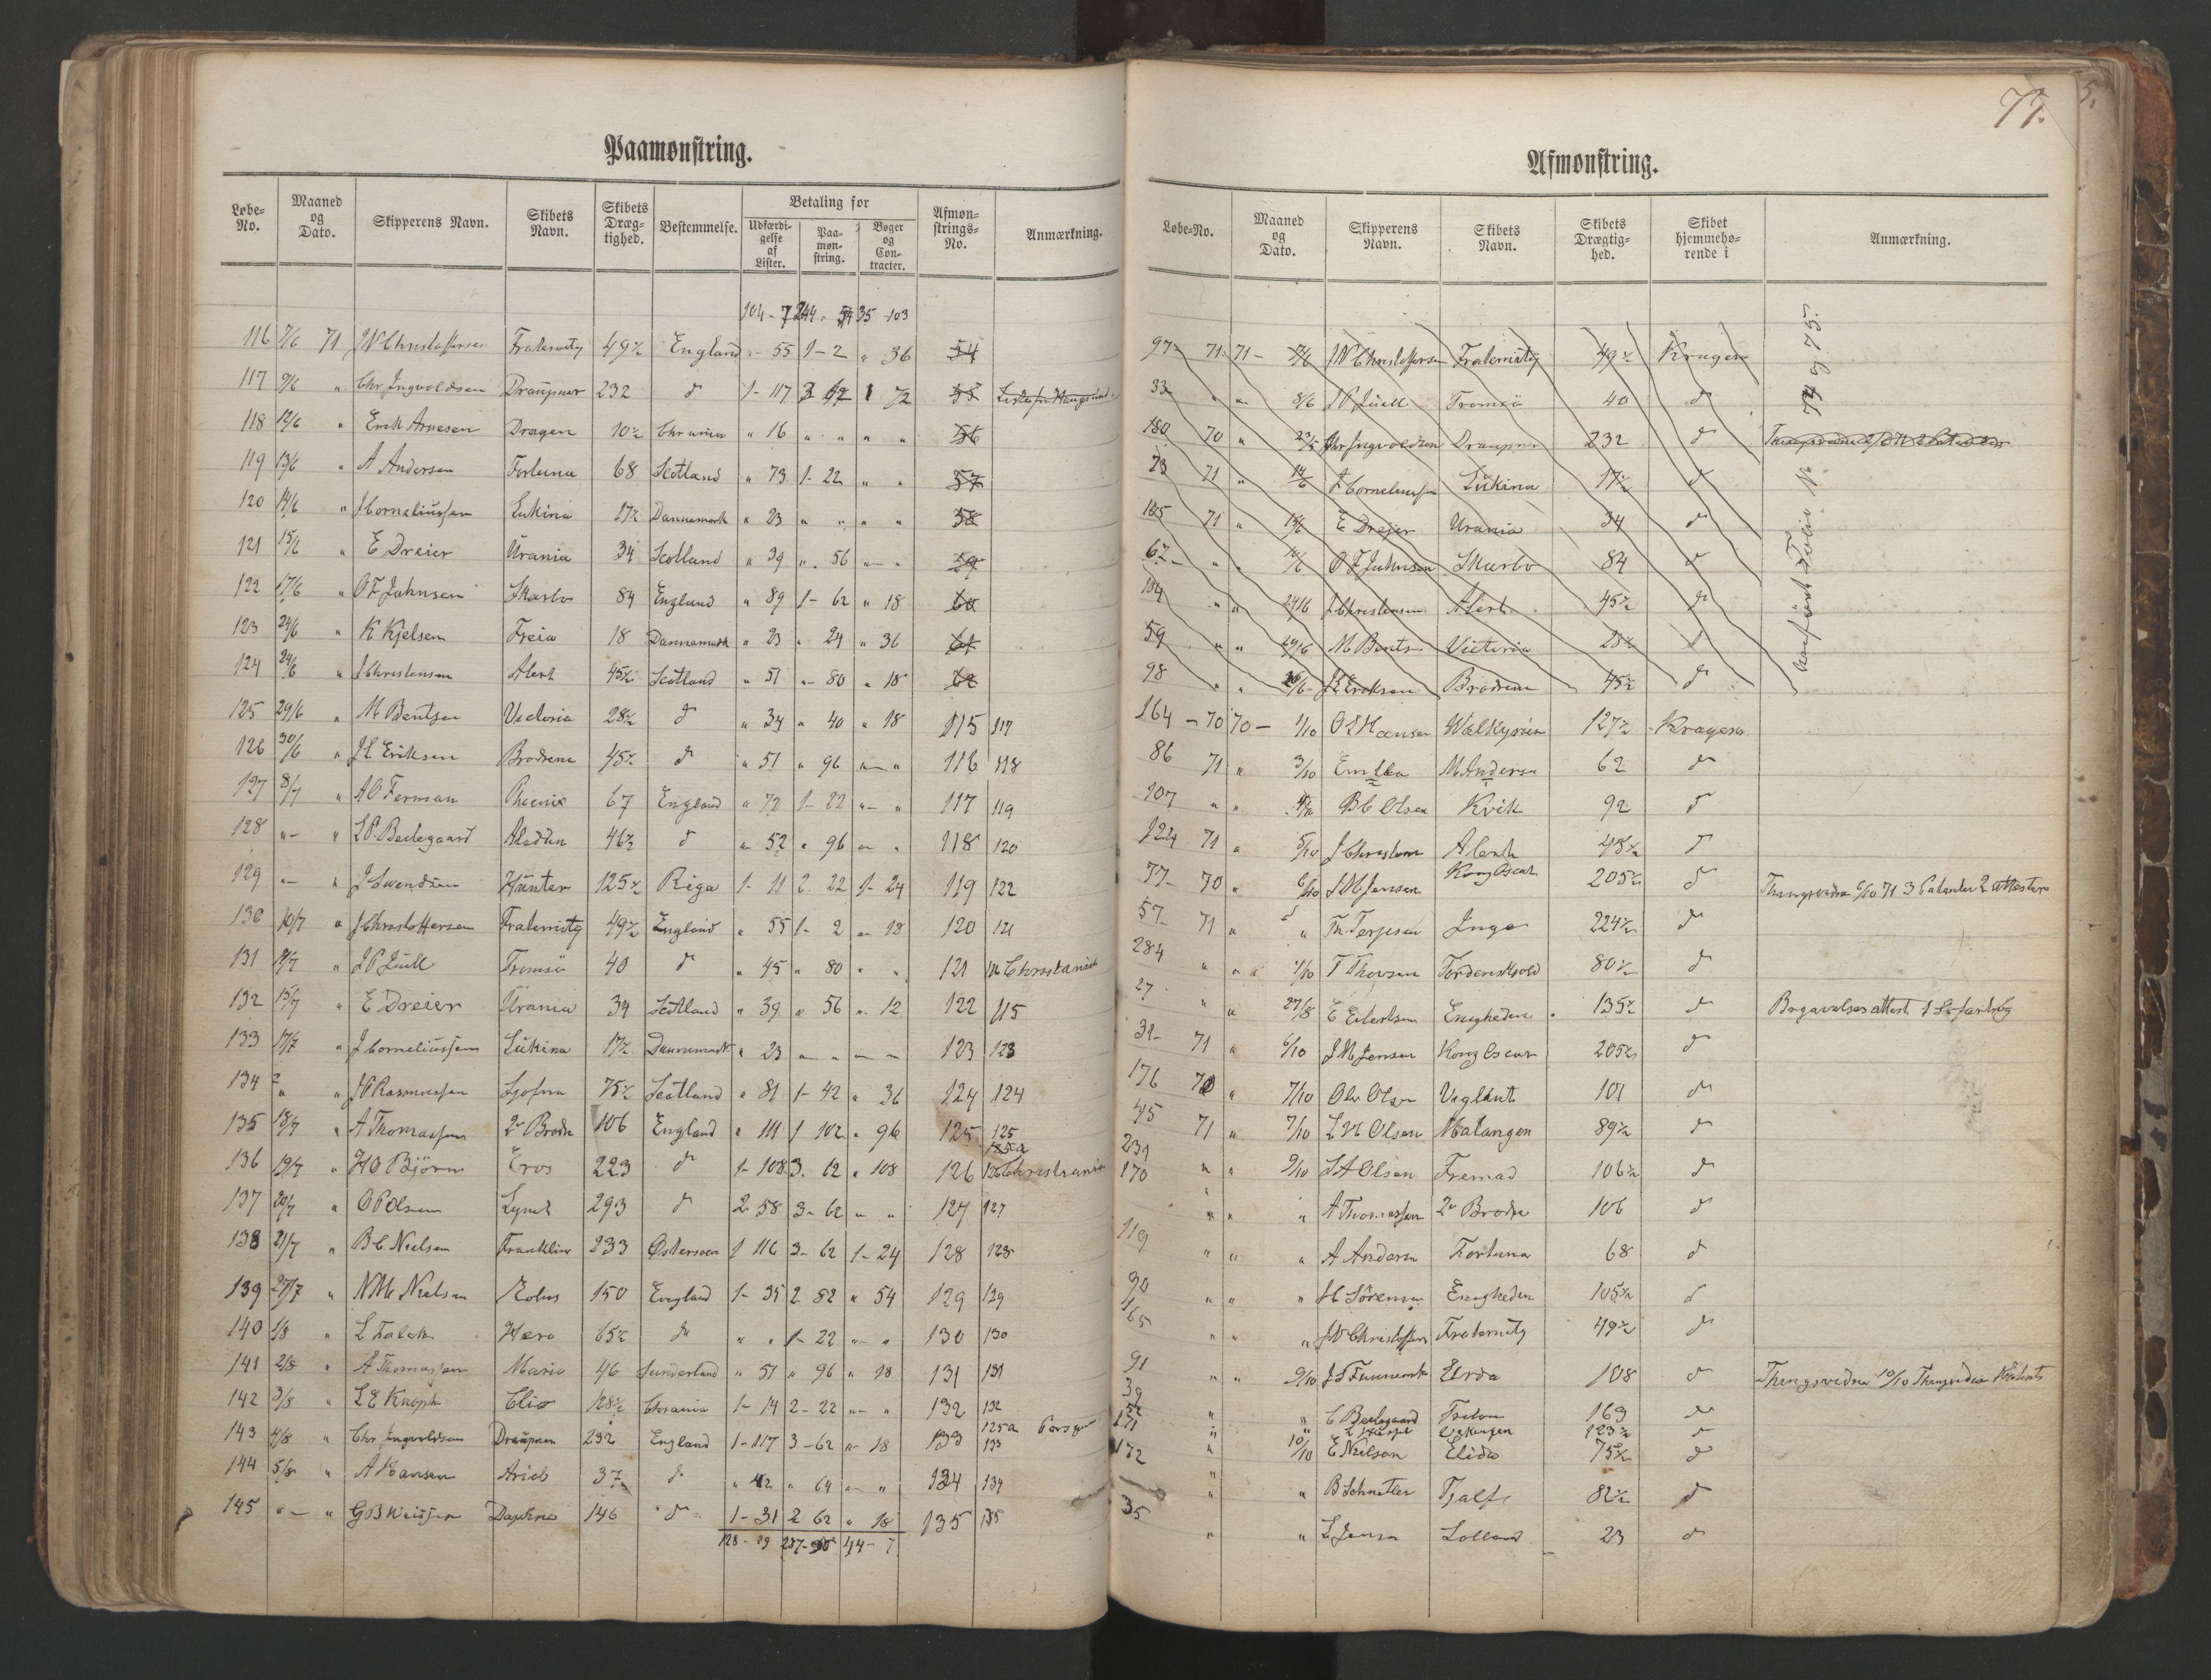 Paamønstring.
Løbe-No. Maaned og Dato. Skipperens Navn. Skibets Navn. Skibets Dræg-tighed. Bestemmelse. Betaling for Udfærdi-gelse af Lister. Paa-møn-string. Bøger og Con-tracter. Afmøn-strings-No. Anmærkning.
116 7/6 71 Fraternity 49½ England " 55 1-2 " 36 54
117 9/6 " Chr Ingvoldsen Draupner 232 d 1-117 3 62 1 72 55
118 12/6 " Erik Arnesen Dragen 10½ Chrania " 16 " " " " 56
119 13/6 " A Andersen Fortuna 68 Scotland " 73 1-22 " " 57
120 14/6 " J Corneliussen Lukina 17½ Dannemark " 23 " " " " 58
121 15/6 " E Dreier Urania 34 Scotland " 39 " 56 " " 59
122 17/6 " O F Jahnsen Skarbo 84 England " 89 1-62 " 18 60
123 24/6 " K Kjelsen Freia 18 Dannemark " 23 " 24 " 36 61
124 24/6 " J Christensen Alert 45½ Scotland " 51 " 80 " 18 62
125 29/6 " M Bentsen Victoria 28½ d " 34 " 40 " 18 115 117
126 30/6 " J L Eriksen Brødrene 45½ d " 51 " 96 " " 116 118
127 8/7 " A O Ferman Phoenix 67 England " 72 1-22 " " 117 119
128 " " Aladdin 46½ d " 52 " 96 " " 118 120
129 " " J Svendsen Hunter 125½ Riga 1-11 2 22 1-24 119 122
130 10/7 " J Christoffersen Fraternity 49½ England " 55 1-2 " 18 120 121
131 " J P Juell Tromsö 40 d " 45 " 80 " " 121 Christania
132 15/7 " E Dreier Urania 34 Scotland " 39 " 56 " 12 122 115
133 17/7 " J Corneliussen Lukina 17½ Dannemark " 23 " " " " 123 123
134 " " Rasmussen 75½ Scotland " 81 1-42 " 36 124 124
135 18/7 " A Thomassen 2de Brødre 106 England " 111 1 102 " 96 125 125
136 19/7 " H O Björn Eros 223 d 1-108 3-62 " 108 126 126 Christiania
137 20/7 " O P Olsen Lynet 293 d 2-58 3-62 " " 127 127
138 21/7 " B C Nielsen Franklin 233 Østersøen 1 116 3-62 1-24 128 128
139 27/7 " N M Nielsen Eolus 150 England 1-35 2 82 " 54 129 129
140 1/8 " L Falck Hero 65½ do " " 1-22 " " 130 130
141 2/8 " A Thomassen Maria 46 Sunderland " 51 " 96 " 18 131 131
142 3/8 " L E Knoph Clio 128½ Chrania 1-14 2-22 " " 132 132
143 4/8 " Chr Ingvoldsen Draupner 232 England 1-117 3-62 " 18 133 125a 133
144 5/8 " A Hansen Ariel 37½ d " 42 " 64 " " 134 134
145 " " Daphne 146 " d 1-31 2 62 " 18 135 135
128-29 44-7
77.
Afmønstring.
Løbe-No. Maaned og Dato. Skipperens Navn. Skibets Navn. Skibets Drægtig-hed. Skibet hjemmehø-rende i Anmærkning.
97 71 71 7/6 J W Christoffersen Fraternity 49½ Kragerø
33 " " 8/6 J P Juell Tromsö 40 d
180 70 " Chr Ingvoldsen Draupner 232 d
73 71 " 14/6 J Corneliussen Lukina 17½ d
105 71 " 15/6 E Dreier Urania 34 d
67 " " O F Jahnsen Skarbo 84 d
104 " " 24/6 J Christensen Alert 45½ d
59 " " 29/6 M Bentsen Victoria 28½ d
98 " " J L Eriksen Brødrene 45½ d
overført Folio No 74 og 75.
164 - 70 70 - 1/10 Hansen Walkyrien 127½ Kragerø
86 71 " 3/10 Emilia M Andersen 62 d
107 " " B C Olsen Kvik 92 d
124 71 " 5/10 J Christensen Alert 45½ d
77 - 70 " 6/10 J M Jensen Kong Oscar 205½ d Thingsvidne 6/10 71 3 Patenter 2 attester
57 - 71 " " Th. Terjesen Inga 224½ d
284 " " 7/10 T Thovsen Tordenskjold 80½ d
27 " " 27/8 E Eilertsen Enigheden 135½ d
32 - 71 " 6/10 J M Jensen Kong Oscar 205½ d
176 70 " 7/10 Ole Olsen Vigilant 101 d
45 71 " 7/10 Olsen Malangen 89½ d
231 " " 9/10 S A Olsen Fremad 106½ d
170 " " " A Thomassen 2de Brødre 106 d
119 " " " A Andersen Fortuna 68 d
90 " " " H Sörensen Enigheden 105½ d
165 " " " J W Christoffersen Fraternity 49½ d
91 " " 9/10 Urda 108 d Thingsvidne 10/10
39 " " 163 d
52 " " 123½ d
171 " 10/10 E Nielsen Elida 75½ d
172 " " B Schnitler Tjalfe 82½ d
35 " " L Jensen Lolland 23 d